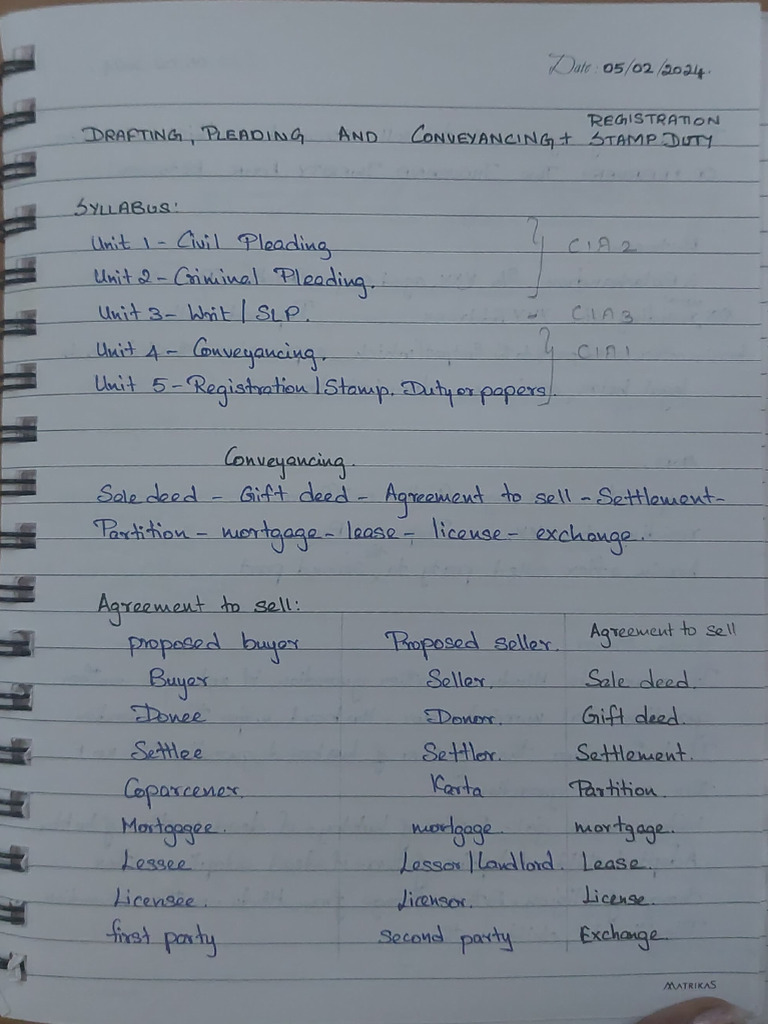 Date: 05/02/2024.
REGISTRATION
DRAFTING, PLEADING AND CONVEYANCING + STAMP DUTY
SYLLABUS:
Unit 1 - Civil Pleading
CIA 2
Unit 2 - Criminal Pleading.
Unit 3 - Writ / SLP. - CIA 3
Unit 4 - Conveyancing. CIA 1
Unit 5 - Registration / Stamp. Duty or papers
Conveyancing.
Sale deed - Gift deed - Agreement to sell - Settlement -
Partition - mortgage - lease - license - exchange.
Agreement to sell:
proposed buyer Proposed seller. Agreement to sell
Buyer Seller. Sale deed.
Donee Donor. Gift deed.
Settlee Settlor. Settlement.
Coparcener. Karta Partition.
Mortgagee. mortgage. mortgage.
Lessee Lessor / Landlord. Lease.
Licensee. Licensor. License.
first party second party Exchange
MATRIKAS